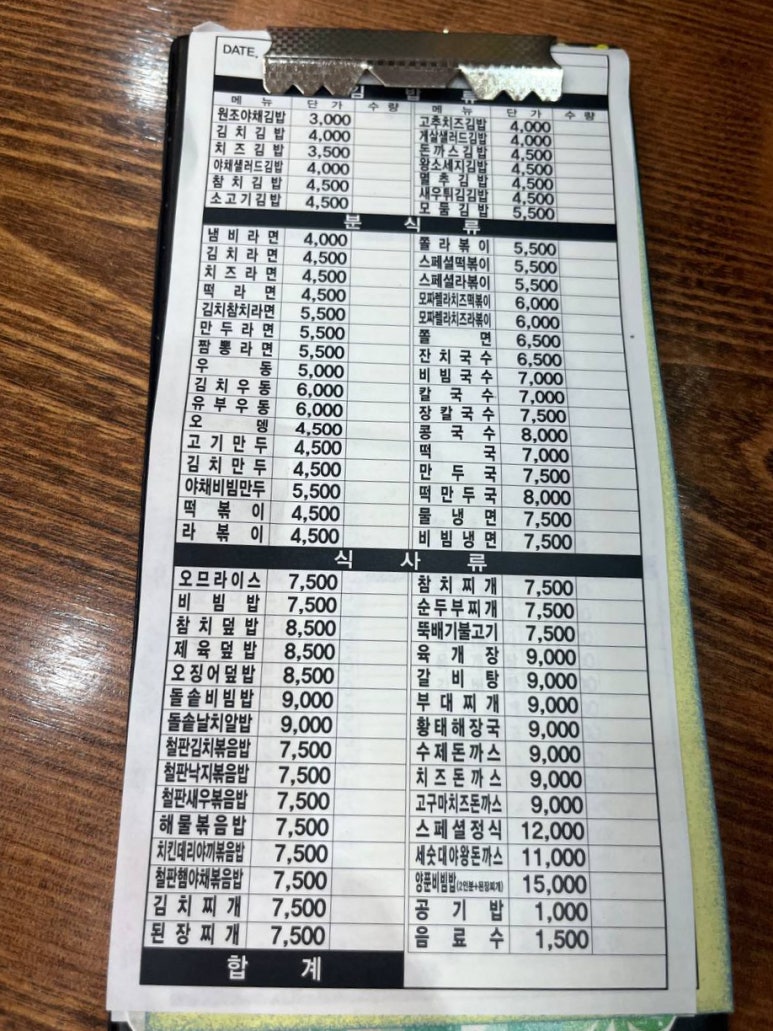 DATE.
김 밥 류
메 뉴 단 가 수 량 메 뉴 단 가 수 량
원조야채김밥 3,000 고추치즈김밥 4,000
김치김밥 4,000 게살샐러드김밥 4,000
치즈김밥 3,500 돈까스김밥 4,500
야채샐러드김밥 4,000 왕소세지김밥 4,500
참치김밥 4,500 멸추김밥 4,500
소고기김밥 4,500 새우튀김김밥 4,500
모둠김밥 5,500
분 식 류
냄비라면 4,000 쫄라볶이 5,500
김치라면 4,500 스페셜떡볶이 5,500
치즈라면 4,500 스페셜라볶이 5,500
떡라면 4,500 모짜렐라치즈떡볶이 6,000
김치참치라면 5,500 모짜렐라치즈라볶이 6,000
만두라면 5,500 쫄면 6,500
짬뽕라면 5,500 잔치국수 6,500
우동 5,000 비빔국수 7,000
김치우동 6,000 칼국수 7,000
유부우동 6,000 장칼국수 7,500
오뎅 4,500 콩국수 8,000
고기만두 4,500 떡국 7,000
김치만두 4,500 만두국 7,500
야채비빔만두 5,500 떡만두국 8,000
떡볶이 4,500 물냉면 7,500
라볶이 4,500 비빔냉면 7,500
식 사 류
오므라이스 7,500 참치찌개 7,500
비빔밥 7,500 순두부찌개 7,500
참치덮밥 8,500 뚝배기불고기 7,500
제육덮밥 8,500 육개장 9,000
오징어덮밥 8,500 갈비탕 9,000
돌솥비빔밥 9,000 부대찌개 9,000
돌솥날치알밥 9,000 황태해장국 9,000
철판김치볶음밥 7,500 수제돈까스 9,000
철판낙지볶음밥 7,500 치즈돈까스 9,000
철판새우볶음밥 7,500 고구마치즈돈까스 9,000
해물볶음밥 7,500 스페셜정식 12,000
치킨데리야끼볶음밥 7,500 세숫대야왕돈까스 11,000
철판햄야채볶음밥 7,500 양푼비빔밥(2인분+된장찌개) 15,000
김치찌개 7,500 공기밥 1,000
된장찌개 7,500 음료수 1,500
합 계